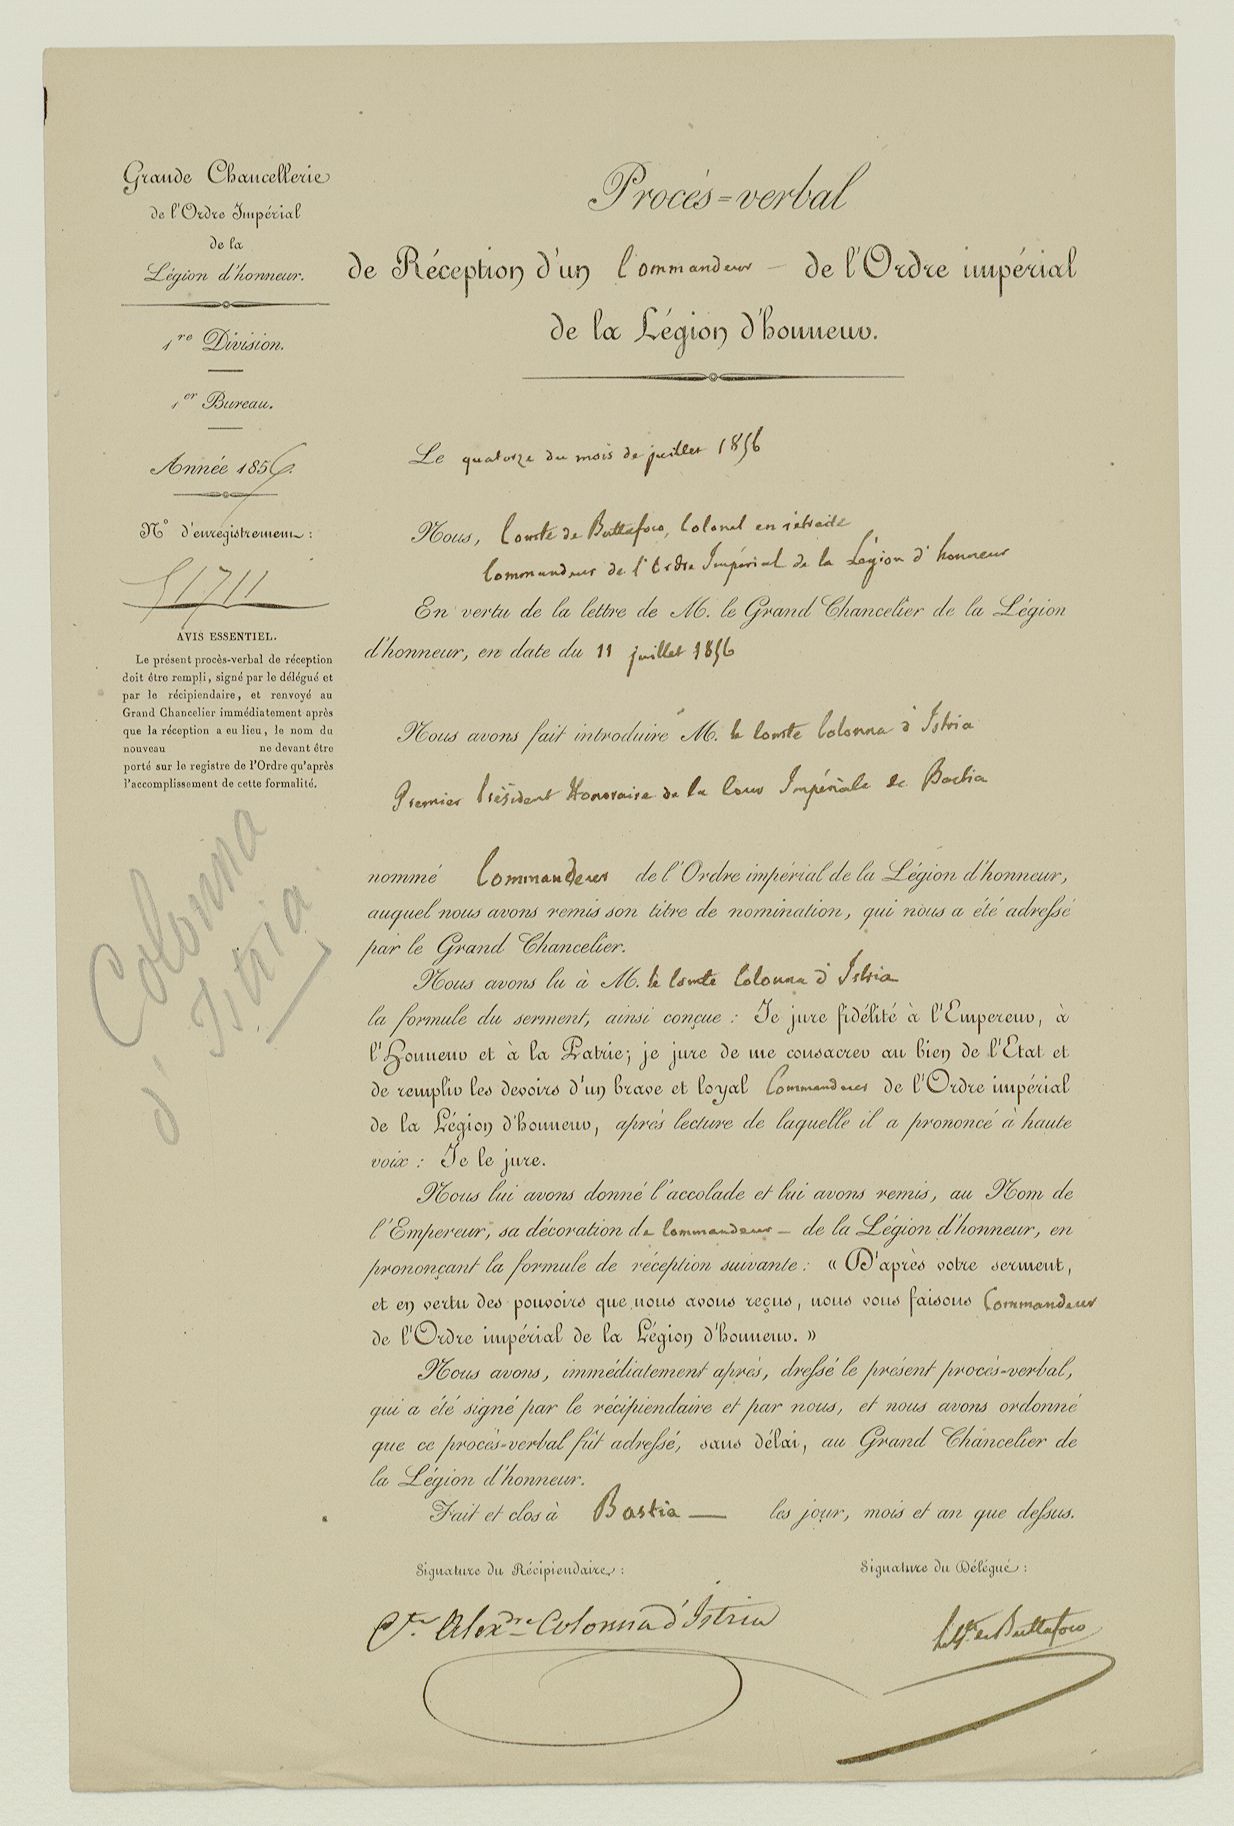 Grande Chancellerie
de l'Ordre Impérial
de la
Légion d'honneur.
1re Division.
1er Bureau.
Année 1856.
N° d'enregistrement :
51711
AVIS ESSENTIEL.
Le présent procès-verbal de réception
doit être rempli, signé par le délégué et
par le récipiendaire, et renvoyé au
Grand Chancelier immédiatement après
que la réception a eu lieu, le nom du
nouveau ne devant être
porté sur le registre de l'Ordre qu'après
l'accomplissement de cette formalité.
Colonna
d'Istria
Procès=verbal
de Réception d'un Commandeur – de l'Ordre impérial
de la Légion d'honneur.
Le quatorze du mois de juillet 1856
Nous, Comte de Buttafoco, Colonel en retraite
Commandeur de l'Ordre Impérial de la Légion d'honneur
En vertu de la lettre de M. le Grand Chancelier de la Légion
d'honneur, en date du 11 juillet 1856
Nous avons fait introduire M. le Comte Colonna d'Istria
Premier Président Honoraire de la Cour Impériale de Bastia
nommé Commandeur de l'Ordre impérial de la Légion d'honneur,
auquel nous avons remis son titre de nomination, qui nous a été adressé
par le Grand Chancelier.
Nous avons lu à M. le Comte Colonna d'Istria
la formule du serment, ainsi conçue : Je jure fidélité à l'Empereur, à
l'Honneur et à la Patrie; je jure de me consacrer au bien de l'Etat et
de remplir les devoirs d'un brave et loyal Commandeur de l'Ordre impérial
de la Légion d'honneur, après lecture de laquelle il a prononcé à haute
voix : Je le jure.
Nous lui avons donné l'accolade et lui avons remis, au Nom de
l'Empereur, sa décoration de Commandeur – de la Légion d'honneur, en
prononçant la formule de réception suivante : « D'après votre serment,
et en vertu des pouvoirs que nous avons reçus, nous vous faisons Commandeur
de l'Ordre impérial de la Légion d'honneur. »
Nous avons, immédiatement après, dressé le présent procès-verbal,
qui a été signé par le récipiendaire et par nous, et nous avons ordonné
que ce procès-verbal fût adressé, sans délai, au Grand Chancelier de
la Légion d'honneur.
Fait et clos à Bastia — les jour, mois et an que dessus.
Signature du Récipiendaire :
Signature du Délégué :
Cte Alexdre Colonna d'Istria
de Buttafoco